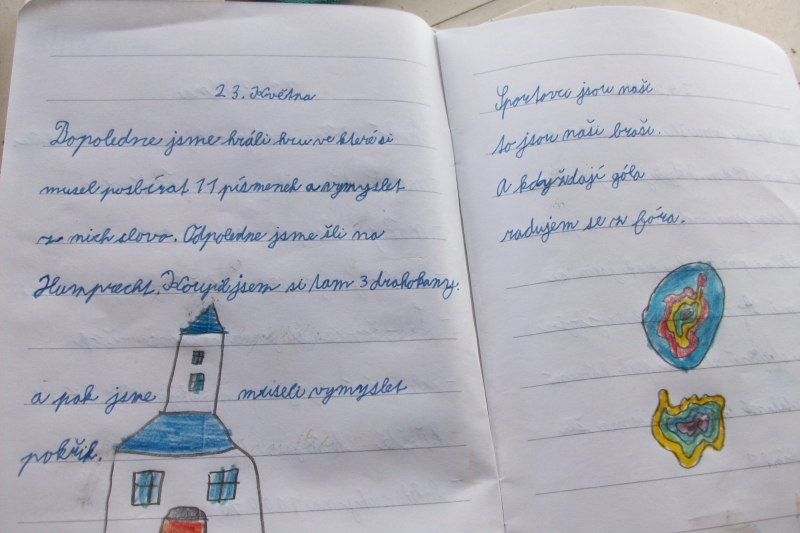 23. Května
Dopoledne jsme hráli hru ve které si
musel posbírat 11 písmenek a vymyslet
z nich slovo. Odpoledne jsme šli na
Humprecht. Koupil jsem si tam 3 drahokamy.
a pak jsme museli vymyslet
pokřik.
Sportovci jsou naši
to jsou naši braši.
A když dají góla
radujem se z fóra.